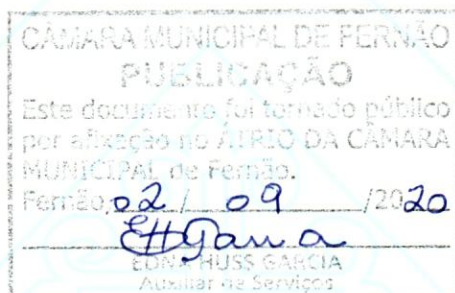 CÂMARA MUNICIPAL DE FERNÃO
PUBLICAÇÃO
Este documento foi tornado público
por afixação no ÁTRIO DA CÂMARA
MUNICIPAL de Fernão.
Fernão, 02 / 09 /2020
EDNA HUSS GARCIA
Auxiliar de Serviços